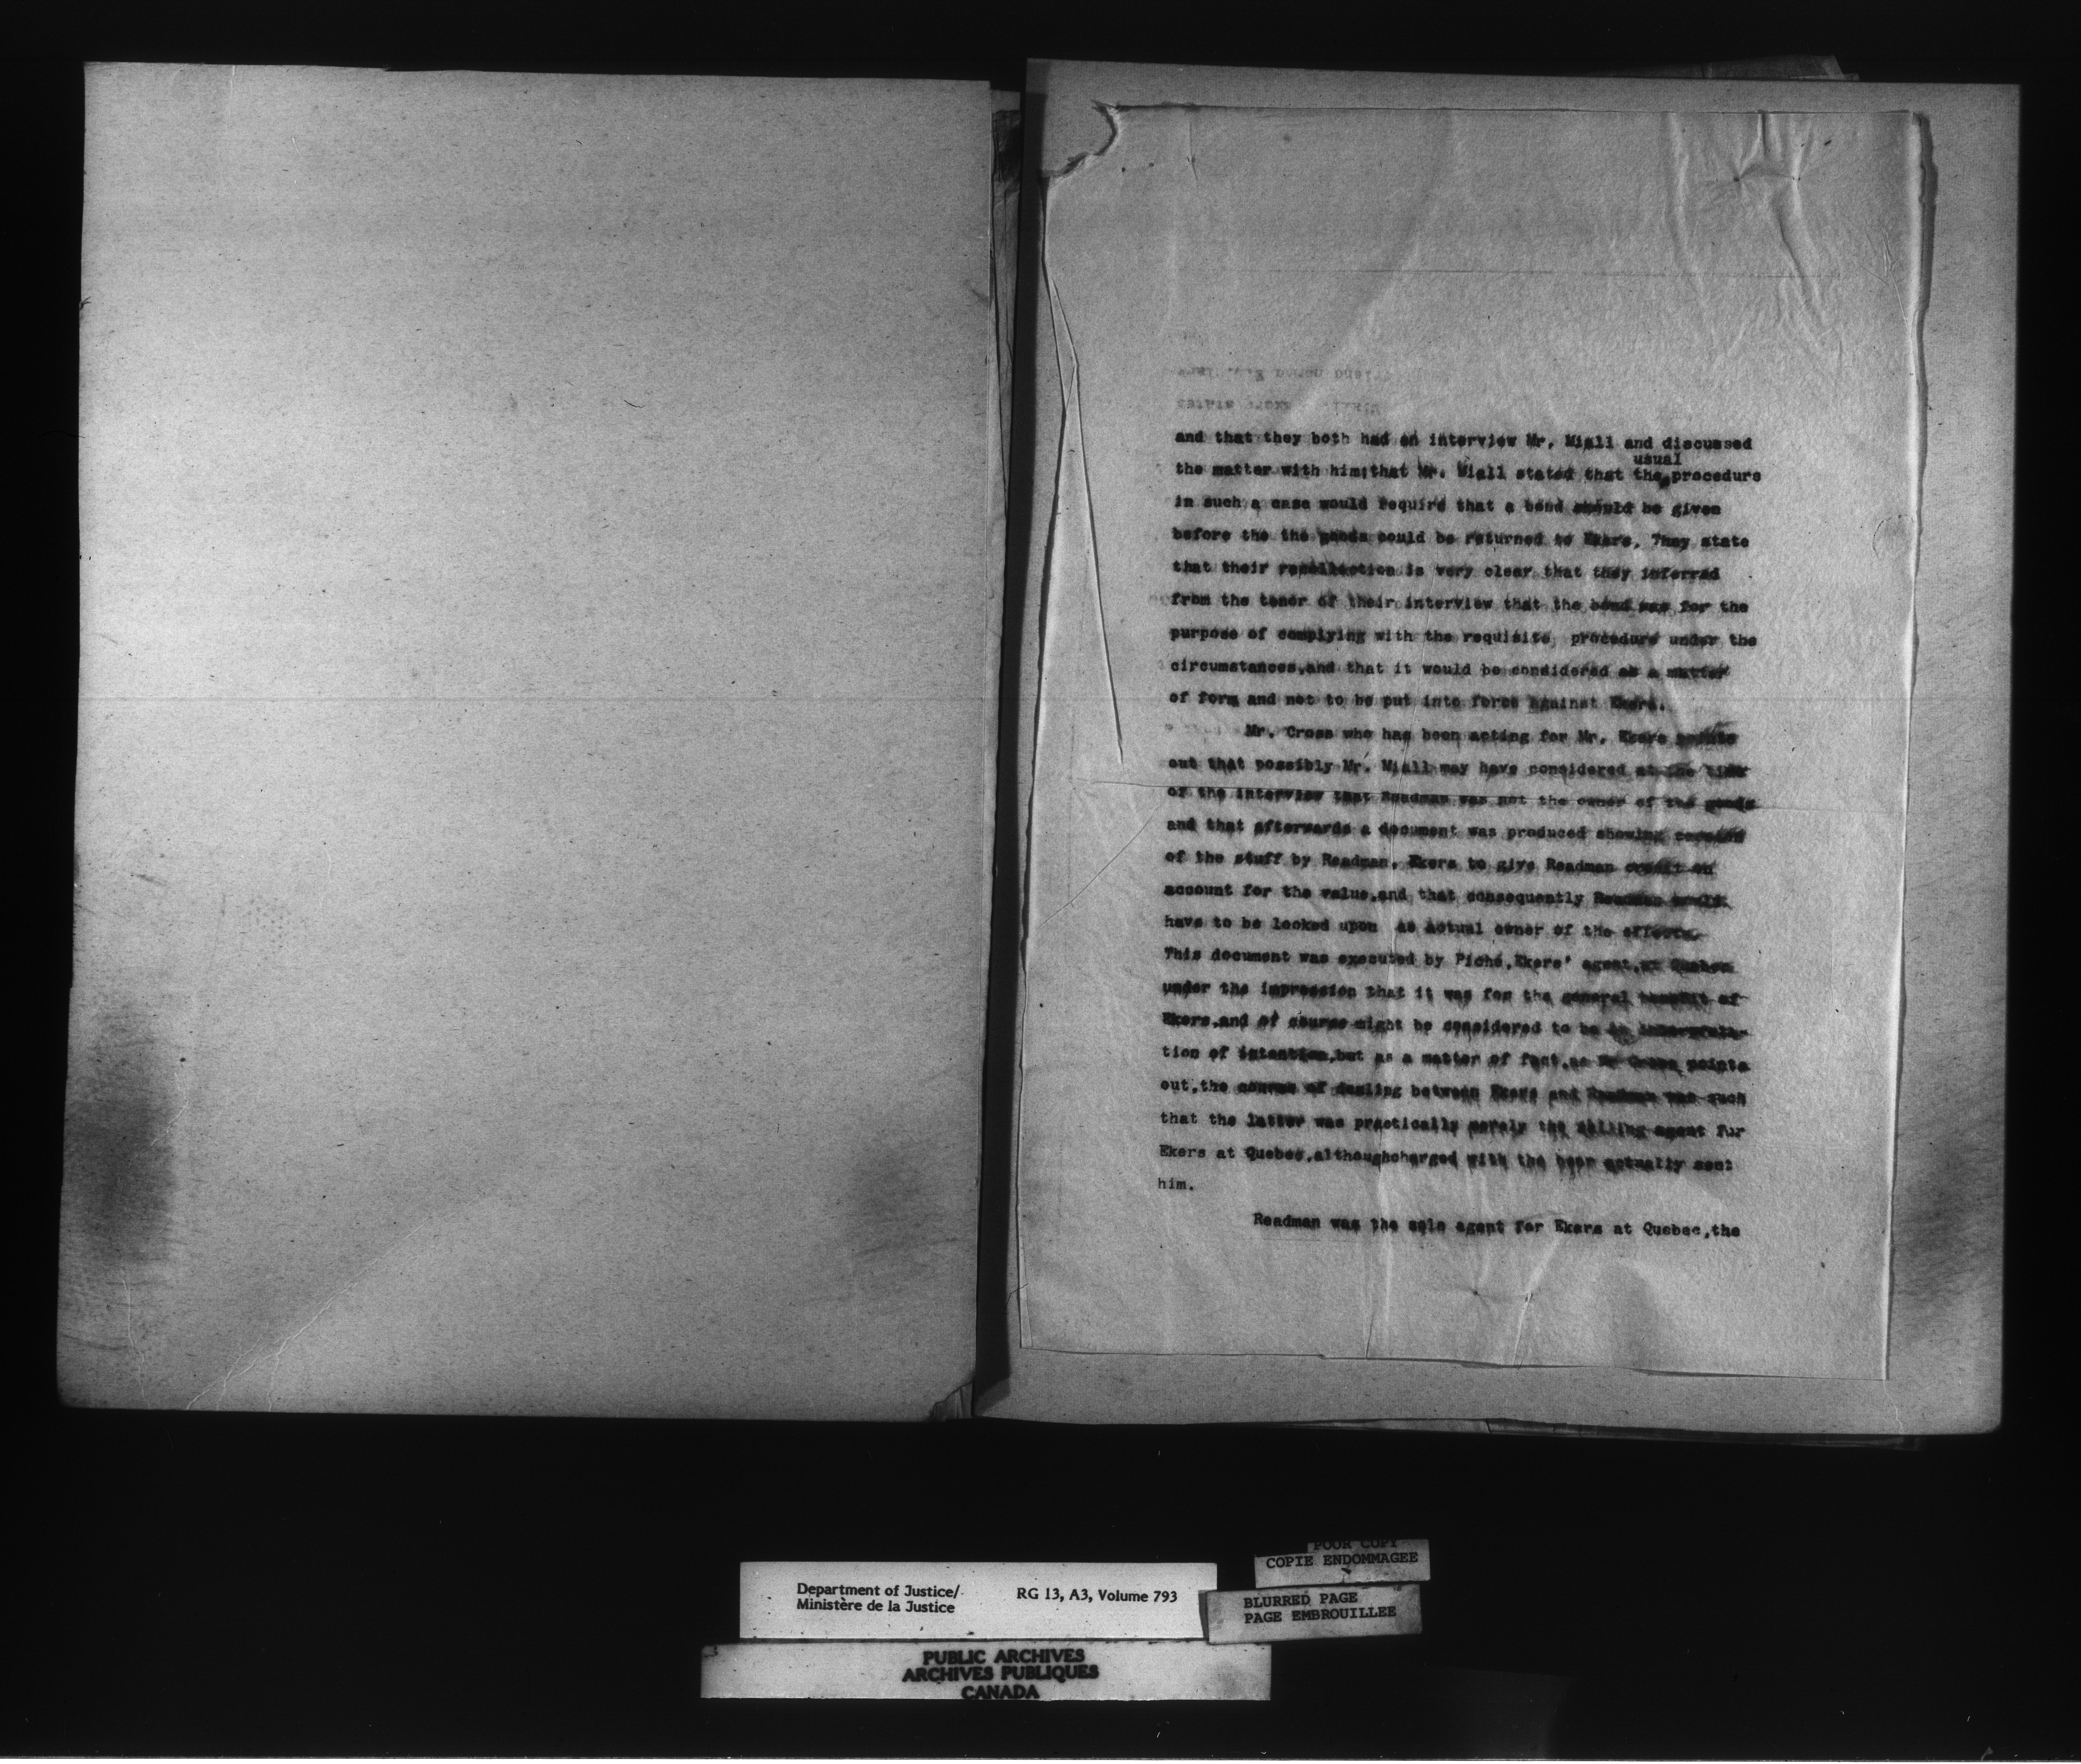 and that they both had an interview Mr. Miall and discussed
usual
the matter with him;that Mr. Miall stated that the procedure
in such a case would require that a bond should be given
before the the goods could be returned to Ekers. They state
that their recollection is very clear that they inferred
from the tenor of their interview that the bond was for the
purpose of complying with the requisite procedure under the
circumstances,and that it would be considered as a matter
of form and not to be put into force against Ekers.
Mr. Cross who has been acting for Mr. Ekers points
out that possibly Mr. Miall may have considered at the time
of the interview that Readman was not the owner of the goods
and that afterwards a document was produced showing
of the stuff by Readman, Ekers to give Readman credit on
account for the value,and that consequently Readman would
have to be looked upon as actual owner of the effects.
This document was executed by Piché,Ekers' agent,at Quebec
under the impression that it was for the general benefit of
Ekers,and of course might be considered to be
tion of intention,but as a matter of fact,as Mr Cross points
out,the course of dealing between Ekers and Readman was such
that the latter was practically merely the selling agent for
Ekers at Quebec,althoughcharged with the beer actually sent
him.
Readman was the sole agent for Ekers at Quebec,the
Department of Justice/
Ministère de la Justice
RG 13, A3, Volume 793
POOR COPY
COPIE ENDOMMAGEE
BLURRED PAGE
PAGE EMBROUILLEE
PUBLIC ARCHIVES
ARCHIVES PUBLIQUES
CANADA